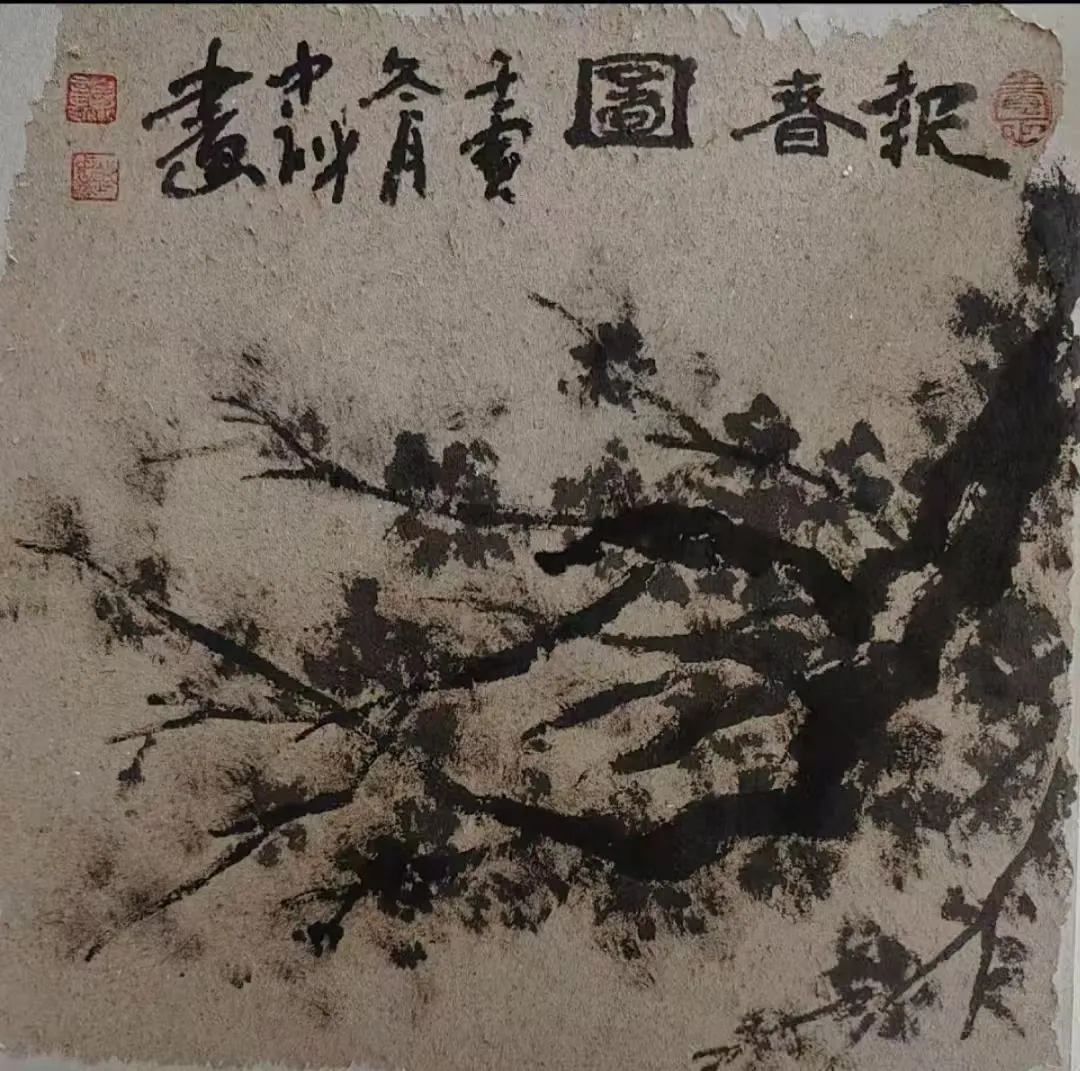 報春圖壬寅冬月中畫